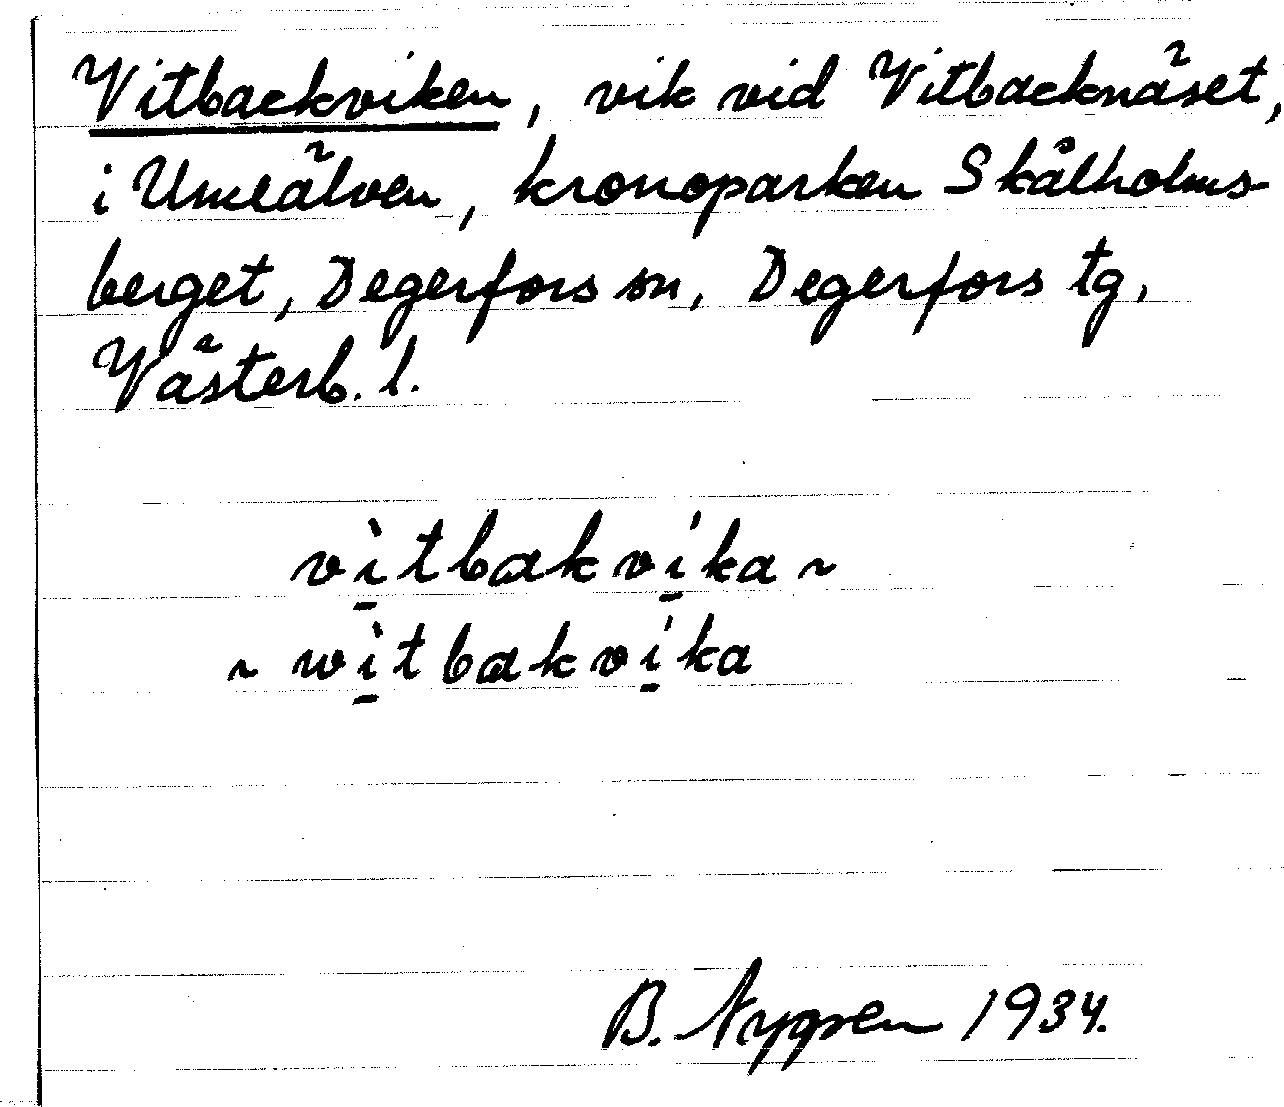 Vitbackviken, vik vid Vitbacknäset,
i Umeälven, kronoparken Skålholms-
berget, Degerfors sn, Degerfors tg,
Västerb. l.
vì̲tbakví̲ka ~
~ wì̲tbakví̲ka
B. Nygren 1934.